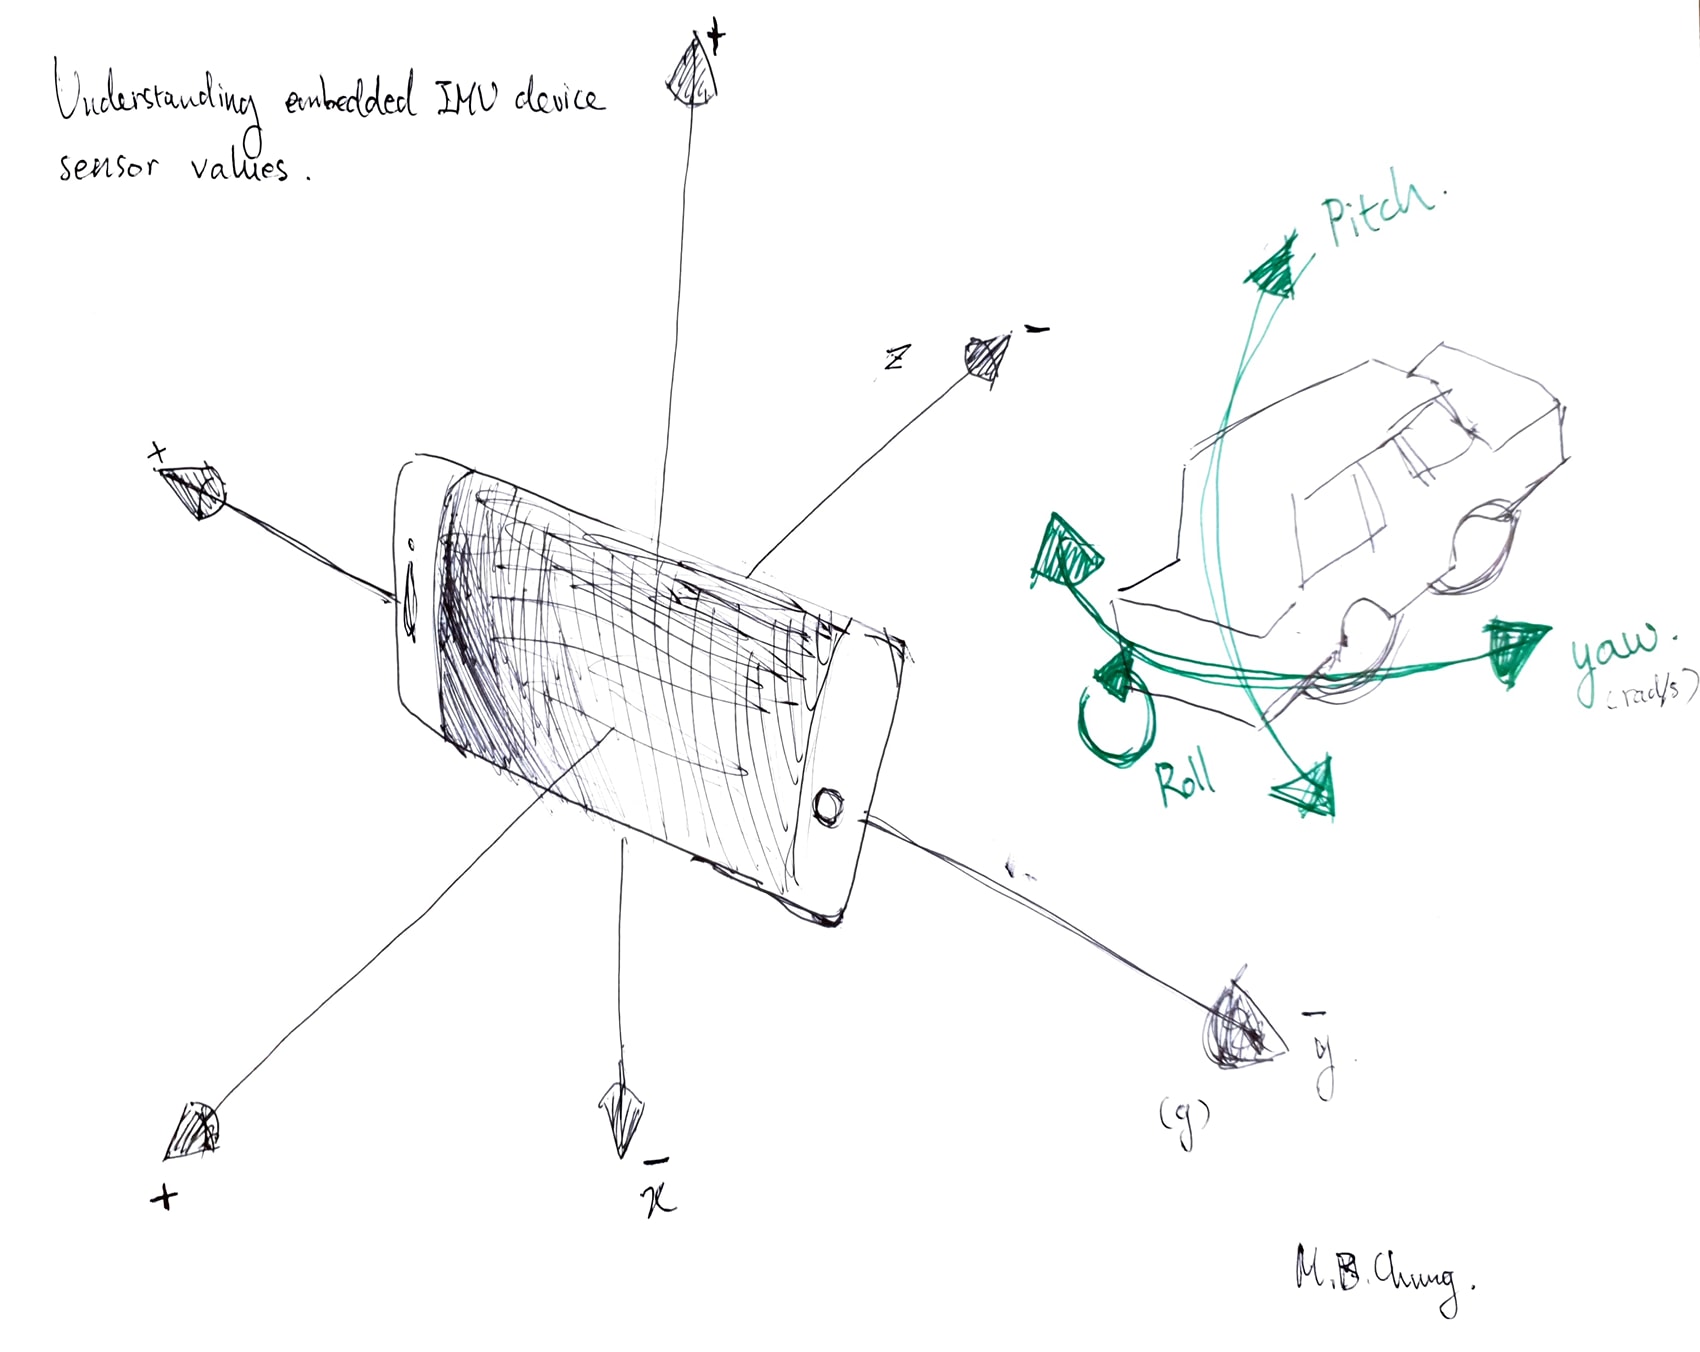 Understanding embedded IMU device
sensor values.
+
Pitch.
z -
+
yaw.
(rad/s)
Roll
- y.
(g)
+
- x
M.B. Chung.